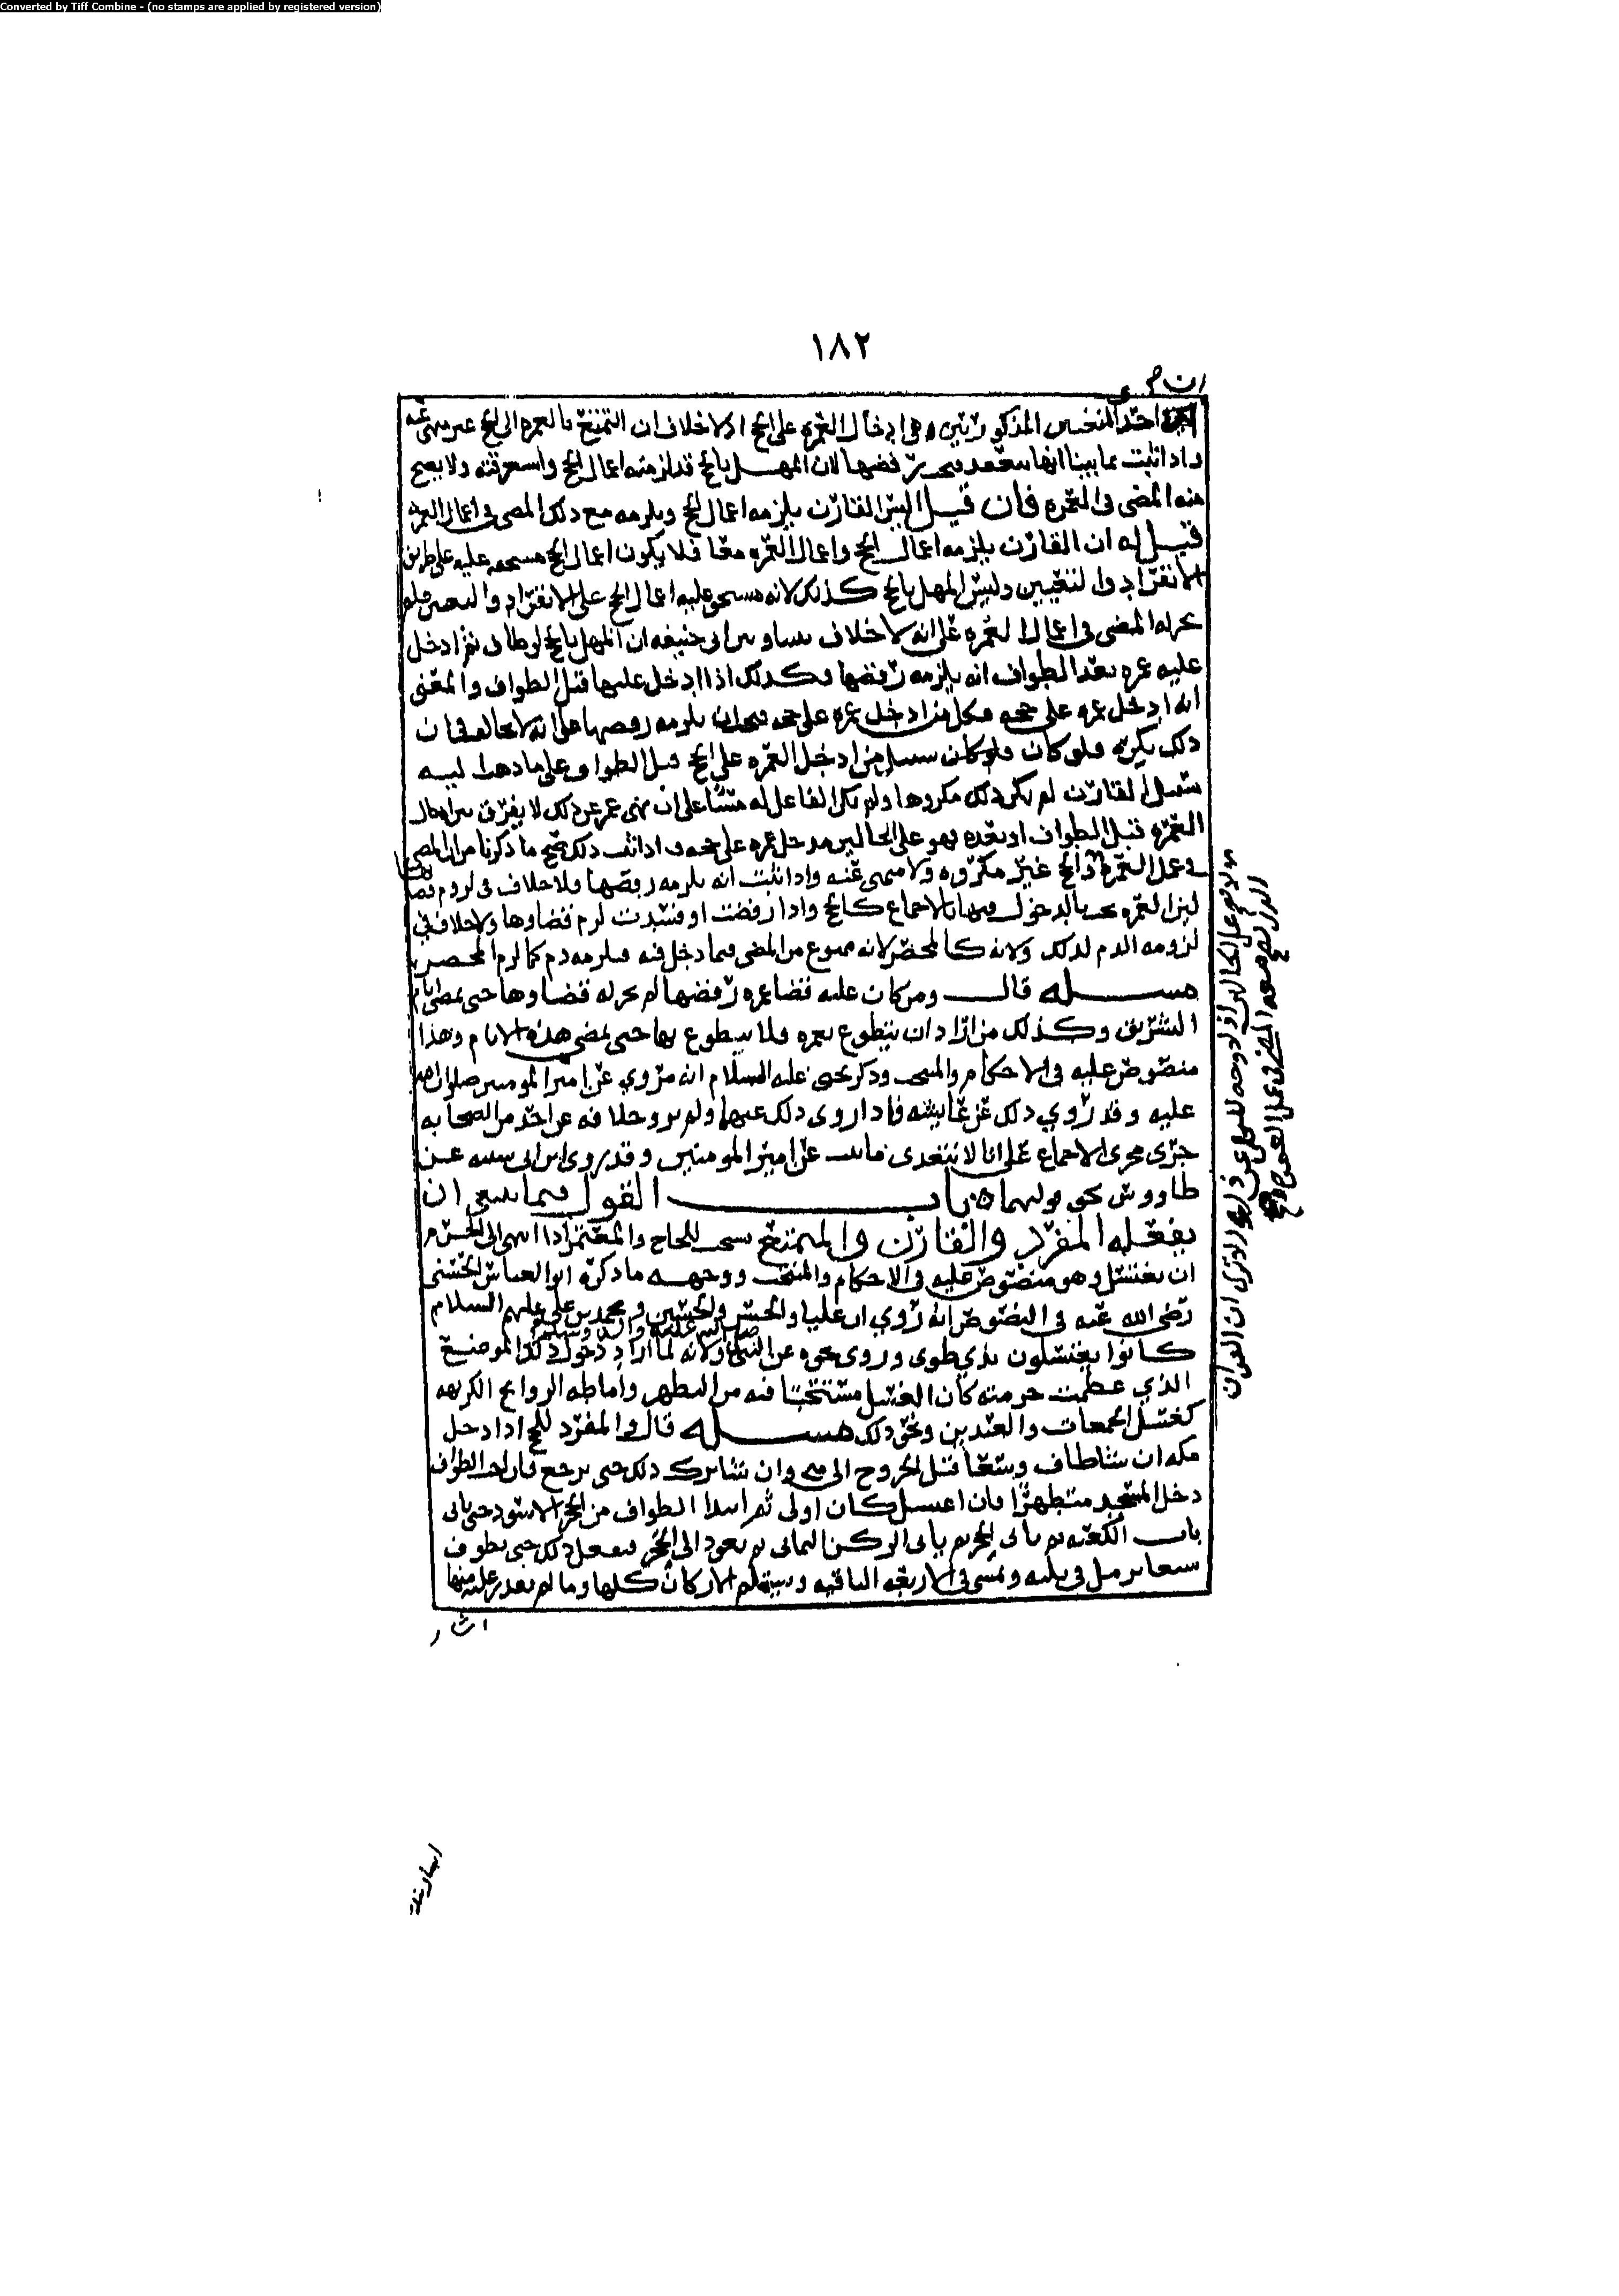 Converted by Tiff Combine - (no stamps are applied by registered version)
١٨٢
احد المذكورتين وهي ادخال العمره على الحج اذ لا خلاف ان التمتع بالعمره الى الحج غير منهي عنه
واذا ثبت بما بينا انها فيجب رفضها لان المهل بالحج قد لزمته اعمال الحج ولا يصح
منه المضي في العمره فان قيل اليس القارن يلزمه اعمال الحج ويلزمه مع ذلك المضي في اعمال العمره
قيل له ان القارن يلزمه اعمال الحج واعمال العمره معا فلا يكون اعمال الحج مستحقه عليه على طريق
الانفراد والتعيين وليس المهل بالحج كذلك لانه مستحق عليه اعمال الحج على الانفراد والتعيين فلم
يجز له المضي في اعمال العمره على انه لا خلاف بيننا وبين ابي حنيفه ان المهل بالحج لو طاف ثم ادخل
عليه عمره بعد الطواف انه يلزمه رفضها وكذلك اذا ادخل عليها قبل الطواف والمعنى
انه ادخل عمره على حجه فكل من ادخل عمره على حجه فيجب ان يلزمه رفضها على انه لا يخالف في ان
ذلك يكره فلو كان فلو كان سبيل من ادخل العمره على الحج قبل الطواف على ما ذهب اليه
سبيل القارن لم يكن ذلك مكروها ولم يكن الفاعل له مسيئا على ان نهي عمر عن ذلك لا يفرق بين ادخال
العمره قبل الطواف او بعده فهو على الحالين مدخل عمره على حجه واذا ثبت ذلك صح ما ذكرنا من ان المضي
في عمل العمره والحج غير مكروه ولا منهي عنه واذا ثبت انه يلزمه رفضها فلا خلاف في لزوم قضا
لان العمره تجب بالدخول فيها بالاجماع كالحج واذا رفضت او فسدت لزم قضاوها ولا خلاف في
لزومه الدم لذلك ولانه كالمحصر لانه ممنوع من المضي فيما دخل فيه فيلزمه دم كما لزم المحصر
مسله قال ومن كان عليه قضا عمره رفضها لم يجز له قضاوها حتى تمضي ايام
التشريق وكذلك من اراد ان يتطوع بعمره فلا يتطوع بها حتى تمضي هذه الايام وهذا
منصوص عليه في الاحكام والمنتخب وذكر يحيى عليه السلام انه مروي عن امير المومنين صلوات الله
عليه وقد روي ذلك عن عايشه فاذا روي ذلك عنهما ولم يرو خلافه عن احد من الصحابه
جرى مجرى الاجماع على انا لا نتعدى ما ثبت عن امير المومنين وقد يروي ابن ابي شيبه عن
طاووس نحو قولهما باب القول فيما ينبغي ان
يفعله المفرد والقارن والمتمتع يستحب للحاج والمعتمر اذا انتهى الى الحرم
ان يغتسل وهو منصوص عليه في الاحكام والمنتخب ووجهه ما ذكره ابو العباس الحسني
رضي الله عنه في النصوص انه روي ان عليا والحسن والحسين ومحمد بن علي عليهم السلام
كانوا يغتسلون بذي طوى وروي نحوه عن النبي صلى الله عليه واله وسلم ولانه لما اراد دخول ذلك الموضع
الذي عظمت حرمته كان الغسل مستحبا فيه من التطهر واماطه الروايح الكريهه
كغسل الجمعات والعيدين ونحو ذلك مسله قال والمفرد للحج اذا دخل
مكه ان شا طاف وسعا قبل الخروج الى منى وان شا ترك ذلك حتى يرجع فان احب الطواف
دخل المسجد متطهرا فان اغتسل كان اولى ثم ابتدا الطواف من الحجر الاسود حتى ياتي
باب الكعبه ثم ياتي الحجر ثم ياتي الركن اليماني ثم يعود الى الحجر يفعل ذلك حتى يطوف
سبعا يرمل في ثلثه ويمشي في الاربعه الباقيه ويستلم الاركان كلها وما لم يقدر عليه منها
اشار